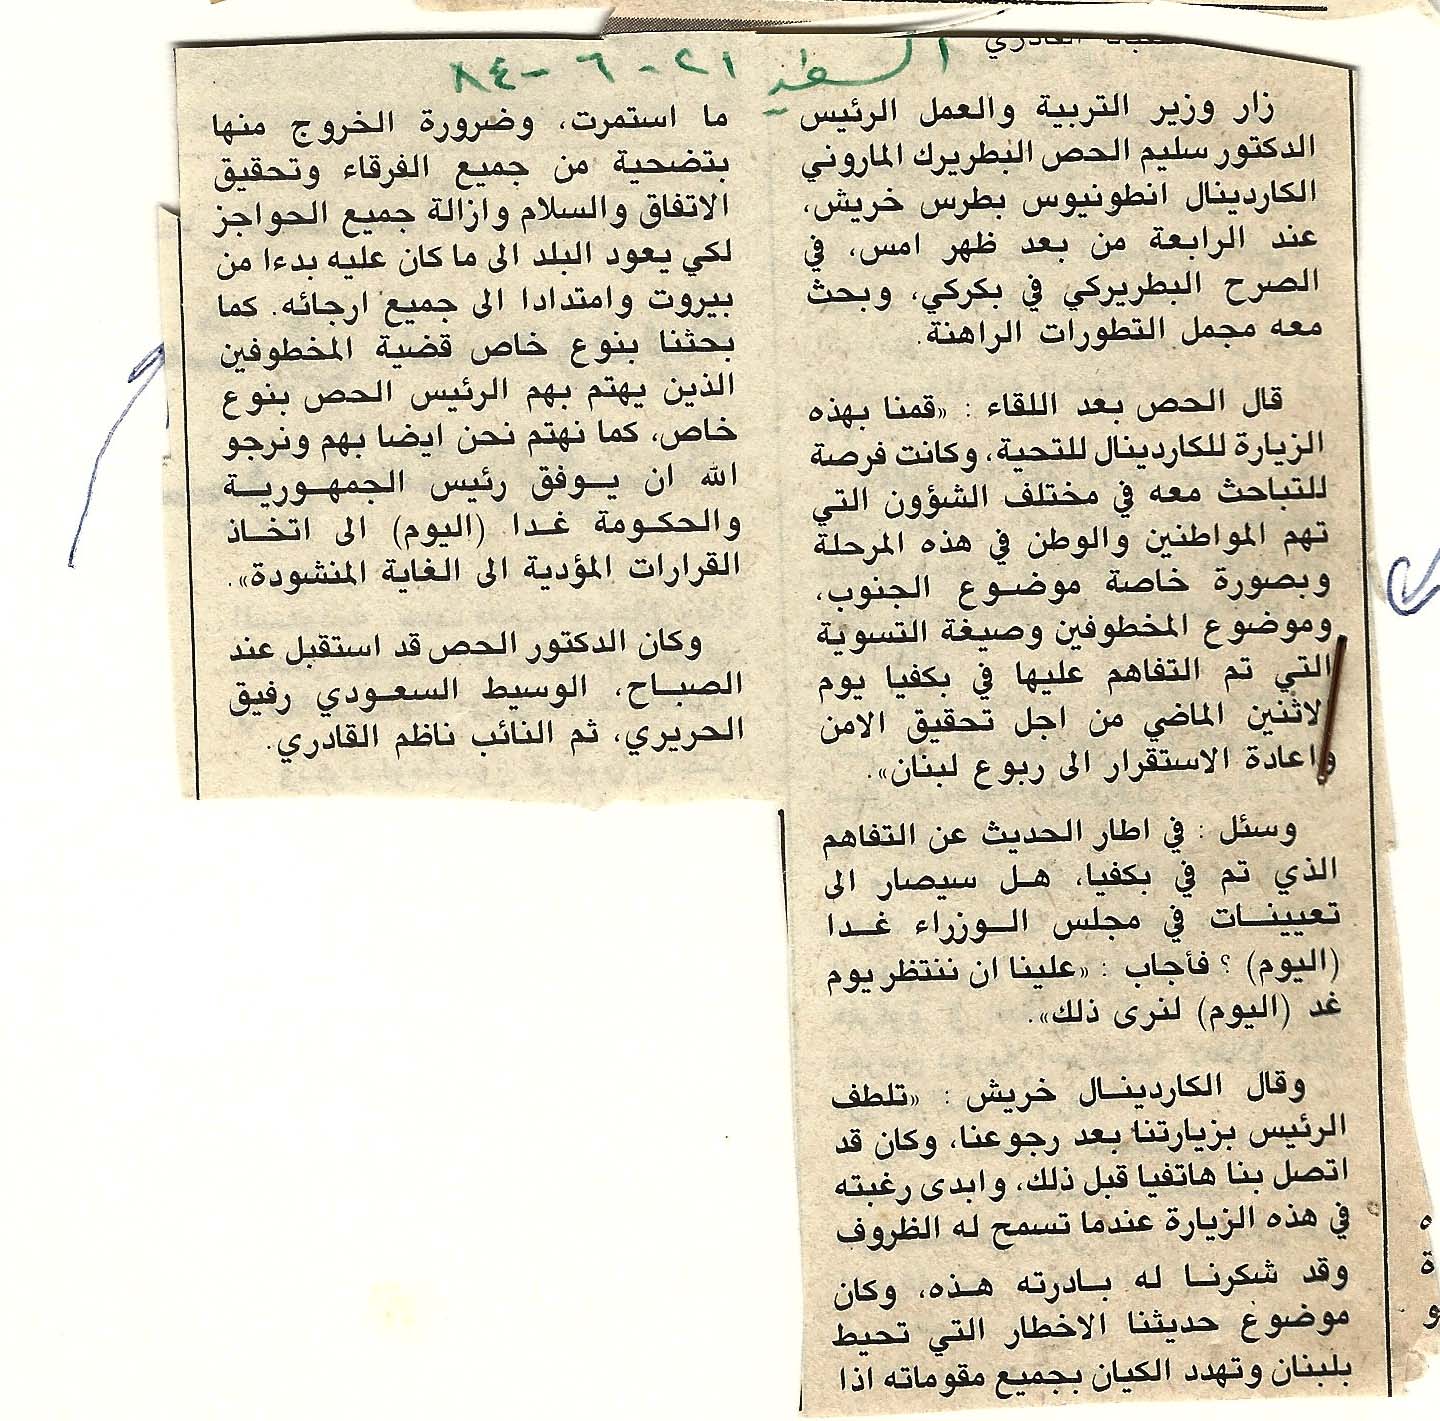 السفير ٢١-٦-٨٤
زار وزير التربية والعمل الرئيس
الدكتور سليم الحص البطريرك الماروني
الكاردينال انطونيوس بطرس خريش،
عند الرابعة من بعد ظهر امس، في
الصرح البطريركي في بكركي، وبحث
معه مجمل التطورات الراهنة.
قال الحص بعد اللقاء : «قمنا بهذه
الزيارة للكاردينال للتحية، وكانت فرصة
للتباحث معه في مختلف الشؤون التي
تهم المواطنين والوطن في هذه المرحلة
وبصورة خاصة موضوع الجنوب،
وموضوع المخطوفين وصيغة التسوية
التي تم التفاهم عليها في بكفيا يوم
لاثنين الماضي من اجل تحقيق الامن
واعادة الاستقرار الى ربوع لبنان».
وسئل : في اطار الحديث عن التفاهم
الذي تم في بكفيا، هل سيصار الى
تعيينات في مجلس الوزراء غدا
(اليوم) ؟ فأجاب : «علينا ان ننتظر يوم
غد (اليوم) لنرى ذلك».
وقال الكاردينال خريش : «تلطف
الرئيس بزيارتنا بعد رجوعنا، وكان قد
اتصل بنا هاتفيا قبل ذلك، وابدى رغبته
في هذه الزيارة عندما تسمح له الظروف
وقد شكرنا له بادرته هذه، وكان
موضوع حديثنا الاخطار التي تحيط
بلبنان وتهدد الكيان بجميع مقوماته اذا
ما استمرت، وضرورة الخروج منها
بتضحية من جميع الفرقاء وتحقيق
الاتفاق والسلام وازالة جميع الحواجز
لكي يعود البلد الى ما كان عليه بدءا من
بيروت وامتدادا الى جميع ارجائه. كما
بحثنا بنوع خاص قضية المخطوفين
الذين يهتم بهم الرئيس الحص بنوع
خاص، كما نهتم نحن ايضا بهم ونرجو
الله ان يوفق رئيس الجمهورية
والحكومة غدا (اليوم) الى اتخاذ
القرارات المؤدية الى الغاية المنشودة».
وكان الدكتور الحص قد استقبل عند
الصباح، الوسيط السعودي رفيق
الحريري، ثم النائب ناظم القادري.